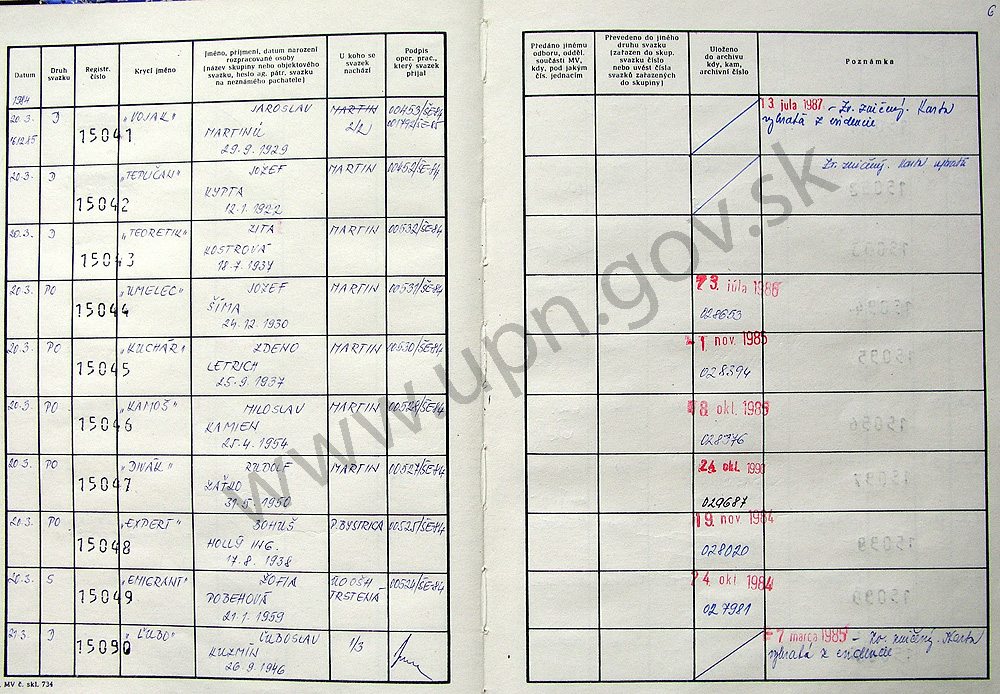 6
Datum
Druh svazku
Registr. číslo
Krycí jméno
Jméno, příjmení, datum narození rozpracované osoby (název skupiny nebo objektového svazku, heslo ag. pátr. svazku na neznámého pachatele)
U koho se svazek nachází
Podpis oper. prac., který svazek přijal
Předáno jinému odboru, odděl. součásti MV, kdy, pod jakým čís. jednacím
Převedeno do jiného druhu svazku (zařazen do skup. svazku číslo nebo uvést čísla svazků zařazených do skupiny)
Uloženo do archivu kdy, kam, archivní číslo
Poznámka
1984
20.3. D 15041 "VOJAK" JAROSLAV MARTIN 00453/ŠE-84
16.12.85 MARTINŮ 2/2 001792/ŠE-85
29.9.1929
13 júla 1987 - Zv. zničený. Karta
vybratá z evidencie
20.3. D 15042 "TEPLIČAN" JOZEF MARTIN 00452/ŠE-84
KYPTA
12.1.1922
Zv. zničený. Karta
20.3. D 15043 "TEORETIK" ZITA MARTIN 00532/ŠE-84
KOSTROVÁ
18.7.1937
20.3. PO 15044 "UMELEC" JOZEF MARTIN 00531/ŠE-84
ŠÍMA
24.12.1930
júla 1986
028653
20.3. PO 15045 "KUCHÁR" ZDENO MARTIN 00530/ŠE-84
LETRICH
25.9.1937
1. nov. 1985
028394
20.3. PO 15046 "KAMOŠ" MILOSLAV MARTIN 00528/ŠE-84
KAMIEN
25.4.1954
8. okt. 1985
028376
20.3. PO 15047 "DIVÁK" RUDOLF MARTIN 00527/ŠE-84
31.5.1950
24. okt. 1990
029687
20.3. PO 15048 "EXPERT" BOHUŠ P.BYSTRICA 00525/ŠE-84
HOLLÝ ING.
17.8.1938
19. nov 1984
028020
20.3. S 15049 "EMIGRANT" ZOFIA 00524/ŠE-84
POBEHOVÁ TRSTENÁ
21.1.1959
24. okt 1984
027981
21.3. D 15050 "ĽUBO" ĽUBOSLAV 1/3
KUZMÍN
26.9.1946
7 marca 1985 - Zv. zničený. Karta
vybratá z evidencie
MV č. skl. 734
www.upn.gov.sk